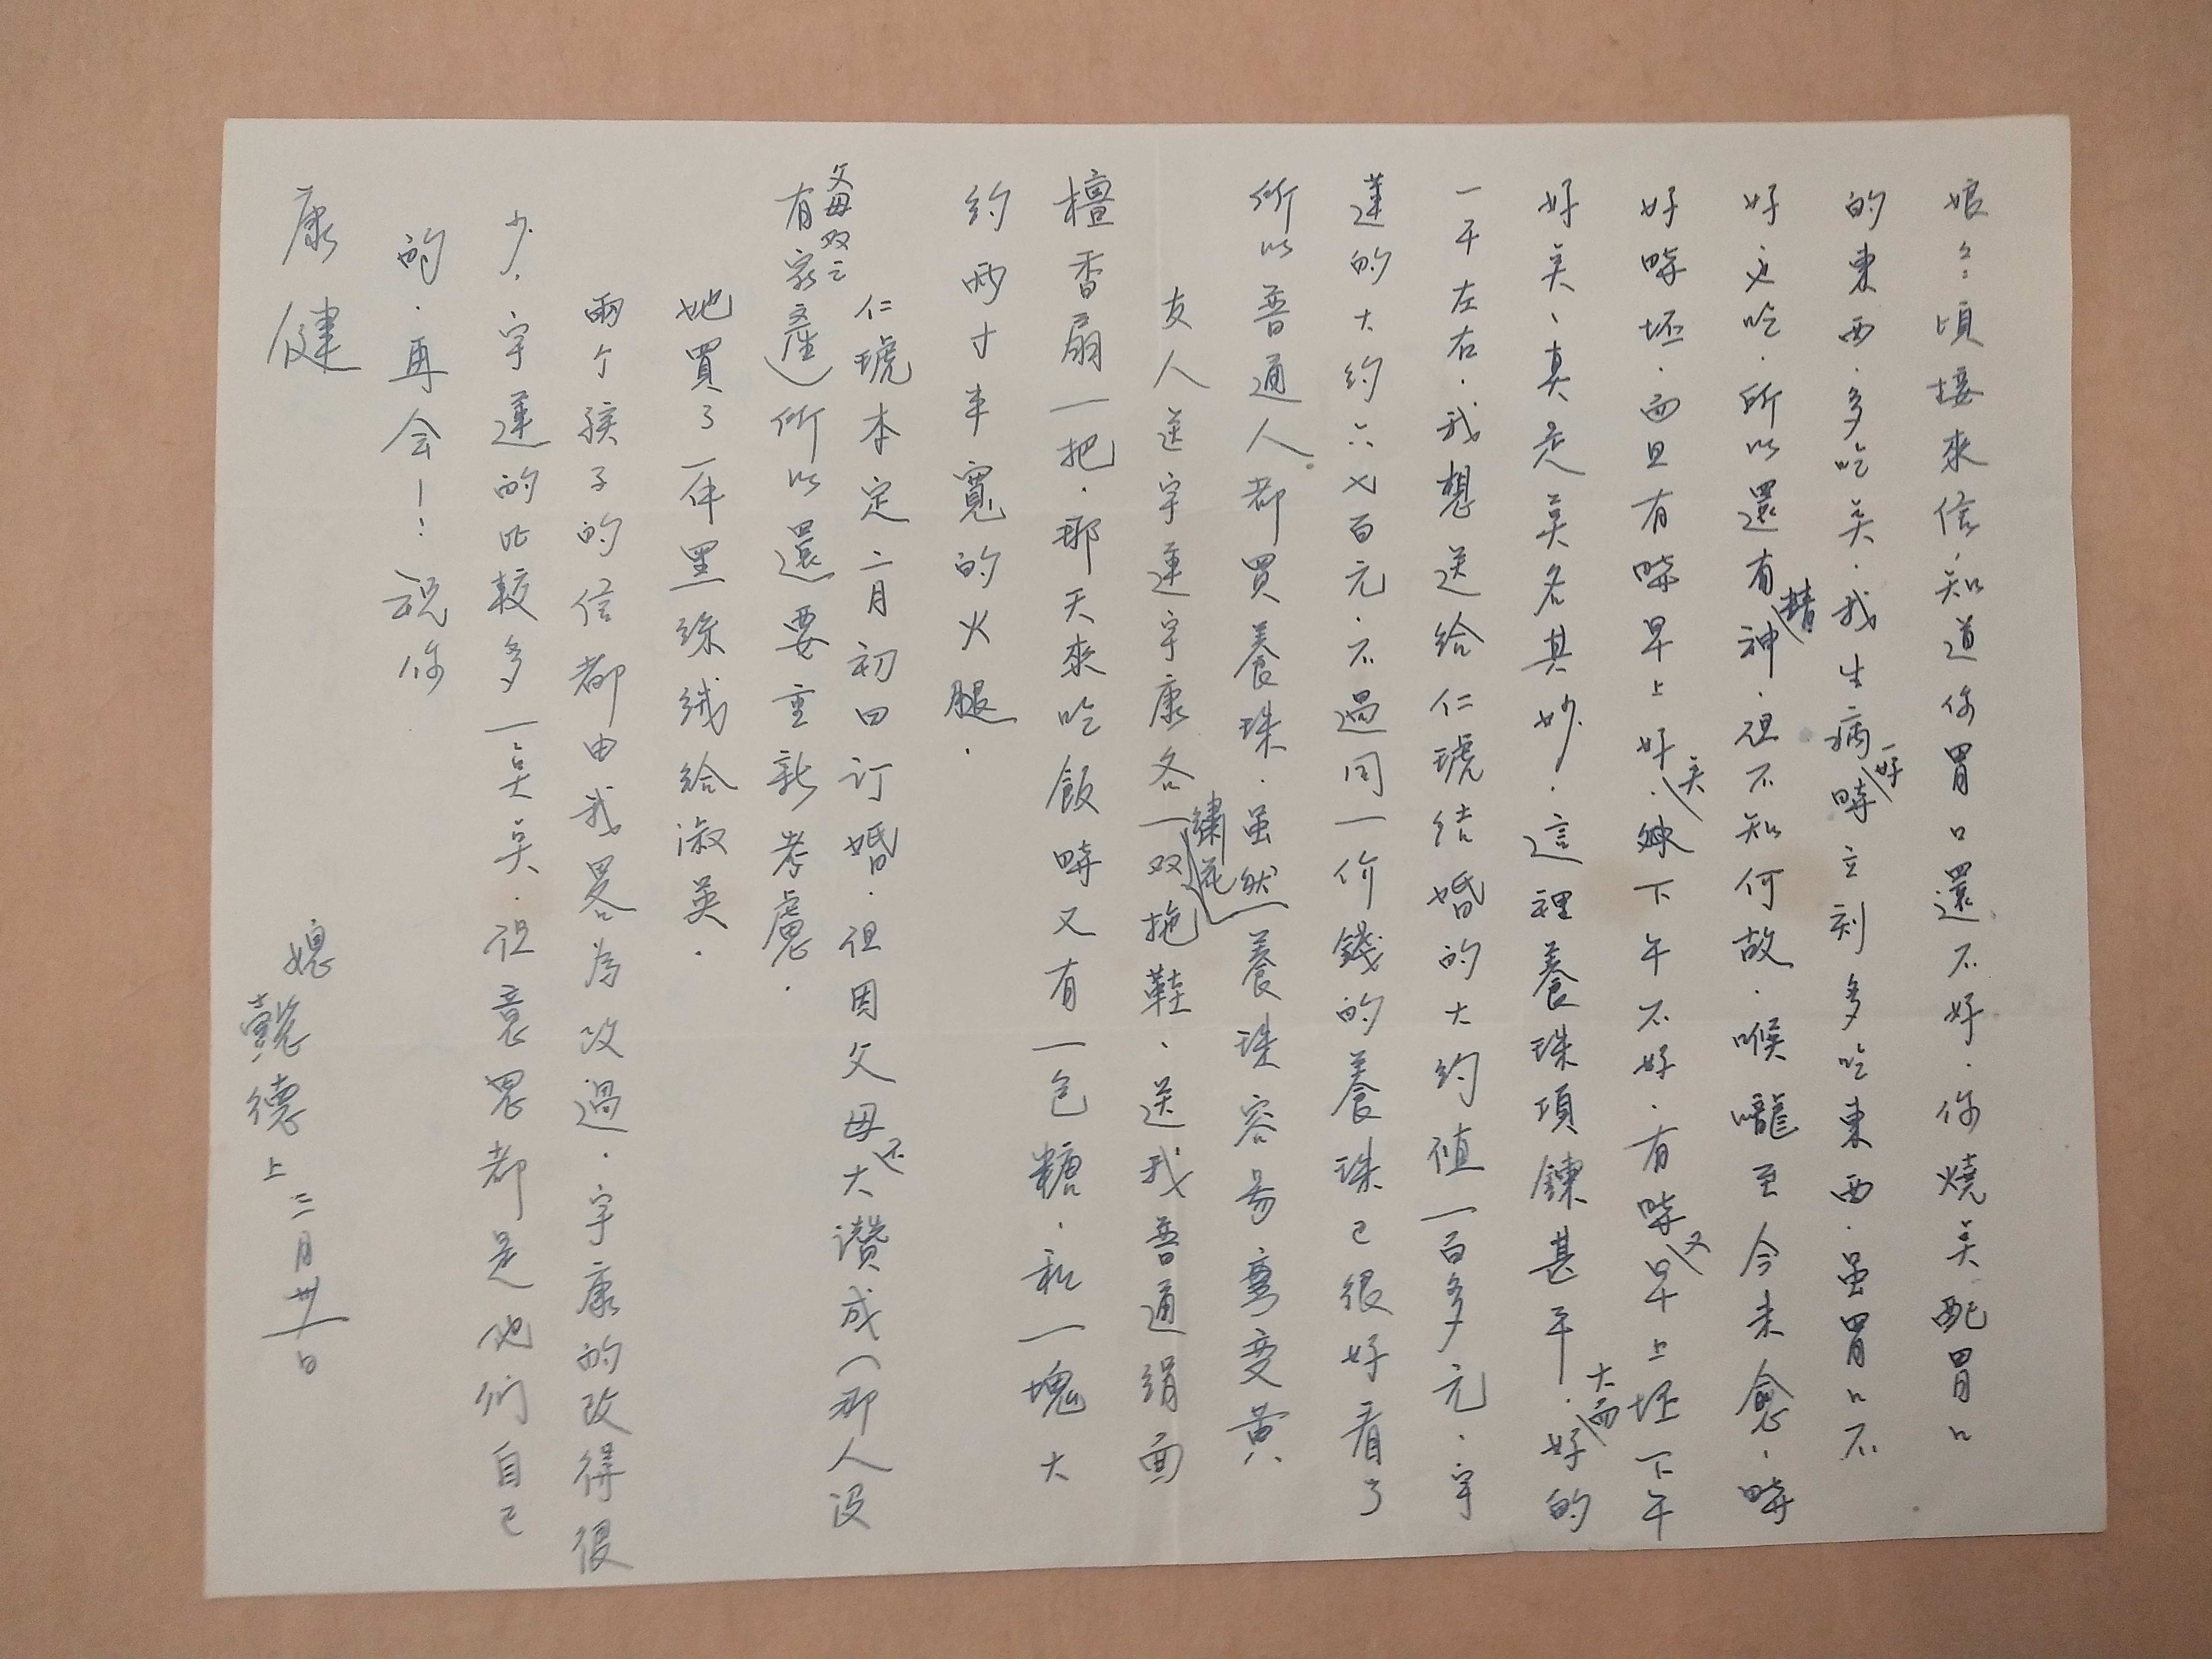 娘々：頃接來信，知道你胃口還不好．你燒吴配胃口
的東西．多吃吴．我生病好時立刻多吃東西．虽胃口不
好也吃．所以還有精神．但不知何故．喉嚨至今未愈．時
好時坏．而且有時早上好吴．缺下午不好．有時又早上坏下午
好吴、真是莫名其妙．這裡養珠項鍊甚平．大而好的
一千左右．我想送給仁琥结婚的大約值一百多元．宇
蓮的大約六七百元．不過同一价錢的養珠已很好看了
所以普通人都買養珠．虽然養珠容易彎变黄
友人送宇蓮宇康各一双繡花拖鞋、送我普通绢面
檀香扇一把．那天來吃飯時又有一包糖．和一塊大
約兩寸半寬的火腿．
仁琥本定二月初四订婚．但因父母不大讚成（那人没
有家產父母双亡）所以還要重新考慮．
她買了一件黑絲绒給淑英．
兩个孩子的信都由我畧為改過．宇康的改得很
少．宇蓮的比較多一吴吴．但意思都是他们自己
的．再会！：祝你
康健
媳懿德上 三月卅一日